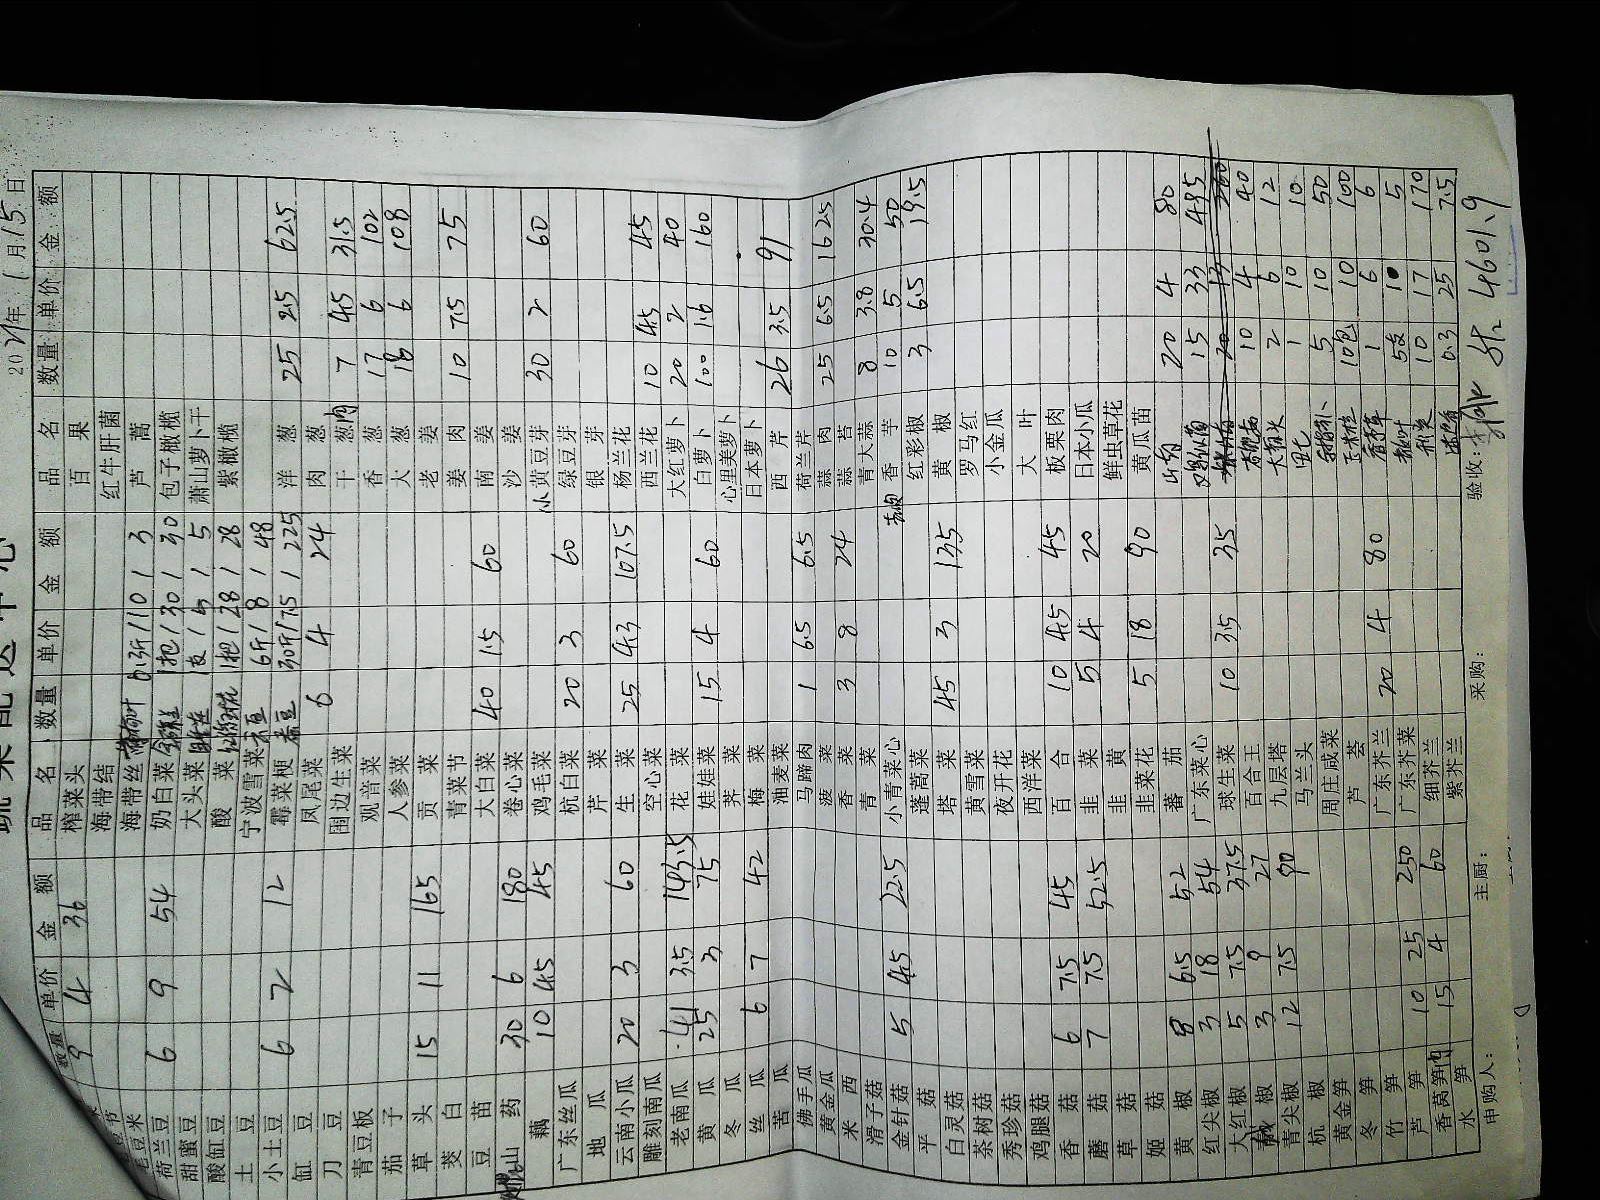 2021年1月15日
数量 单价 金额 品名 数量 单价 金额 品名 数量 单价 金额
9 4 36 榨菜头 百果
节 海带结 红牛肝菌
毛豆米 海带丝 0.3斤/10/3 芦蒿
荷兰豆 6 9 54 奶白菜 1把/30/30 包子橄榄
甜蜜豆 大头菜 1支/5/5 萧山萝卜干
酸缸豆 酸菜 1把/28/28 紫橄榄
土豆 宁波雪菜 6斤/8/48
小土豆 6 2 12 霉菜梗 30斤/7.5/225 洋葱 25 2.5 62.5
缸豆 凤尾菜 6 4 24 肉葱
刀豆 围边生菜 干葱肉 7 4.5 31.5
青豆板 观音菜 香葱 17 6 102
茄子 人参菜 大葱 18 6 108
草头 15 11 165 贡菜 老姜
茭白 青菜节 姜肉 10 7.5 75
豆苗 大白菜 40 1.5 60 南姜
山药 30 6 180 卷心菜 沙姜
藕 10 4.5 45 鸡毛菜 小黄豆芽 30 2 60
广东丝瓜 杭白菜 20 3 60 绿豆芽
地瓜 芹菜 银芽
云南小瓜 20 3 60 生菜 25 4.3 107.5 杨兰花
雕刻南瓜 空心菜 西兰花 10 4.5 45
老南瓜 41 3.5 143.5 花菜 大红萝卜 20 2 40
黄瓜 25 3 75 娃娃菜 15 4 60 白萝卜 100 1.6 160
冬瓜 荠菜 心里美萝卜
丝瓜 6 7 42 梅菜 日本萝卜
苦瓜 油麦菜 西芹 26 3.5 91
佛手瓜 马蹄肉 1 6.5 6.5 荷兰芹
黄金瓜 菠菜 蒜肉 25 6.5 162.5
米西 香菜 3 8 24 蒜苔
滑子菇 青菜 青大蒜 8 3.8 30.4
金针菇 5 4.5 22.5 小青菜心 香芋 10 5 50
平菇 蓬蒿菜 红彩椒 3 6.5 19.5
白灵菇 塔菜 45 3 135 黄椒
茶树菇 黄雪菜 罗马红
秀珍菇 夜开花 小金瓜
鸡腿菇 西洋菜 大叶
香菇 6 7.5 45 百合 10 4.5 45 板栗肉
蘑菇 7 7.5 52.5 韭菜 5 4 20 日本小瓜
草菇 韭黄 鲜虫草花
姬菇 韭菜花 5 18 90 黄瓜苗
黄椒 8 6.5 52 蕃茄 山药 20 4 80
红尖椒 3 18 54 广东菜心 15 33 495
大红椒 5 7.5 37.5 球生菜 10 3.5 35 20 13 260
椒 3 9 27 百合王 10 4 40
青尖椒 12 7.5 90 九层塔 2 6 12
杭椒 马兰头 1 10 10
黄金笋 周庄咸菜 5 10 50
冬笋 芦荟 玉米粒 10包 10 100
竹笋 广东芥兰 20 4 80 1 6 6
芦笋 10 25 250 广东芥菜 5支 1 5
香莴笋肉 15 4 60 细芥兰 10 17 170
水笋 紫芥兰 0.3 25 7.5
申购人: 主厨: 采购: 验收: 4601.9